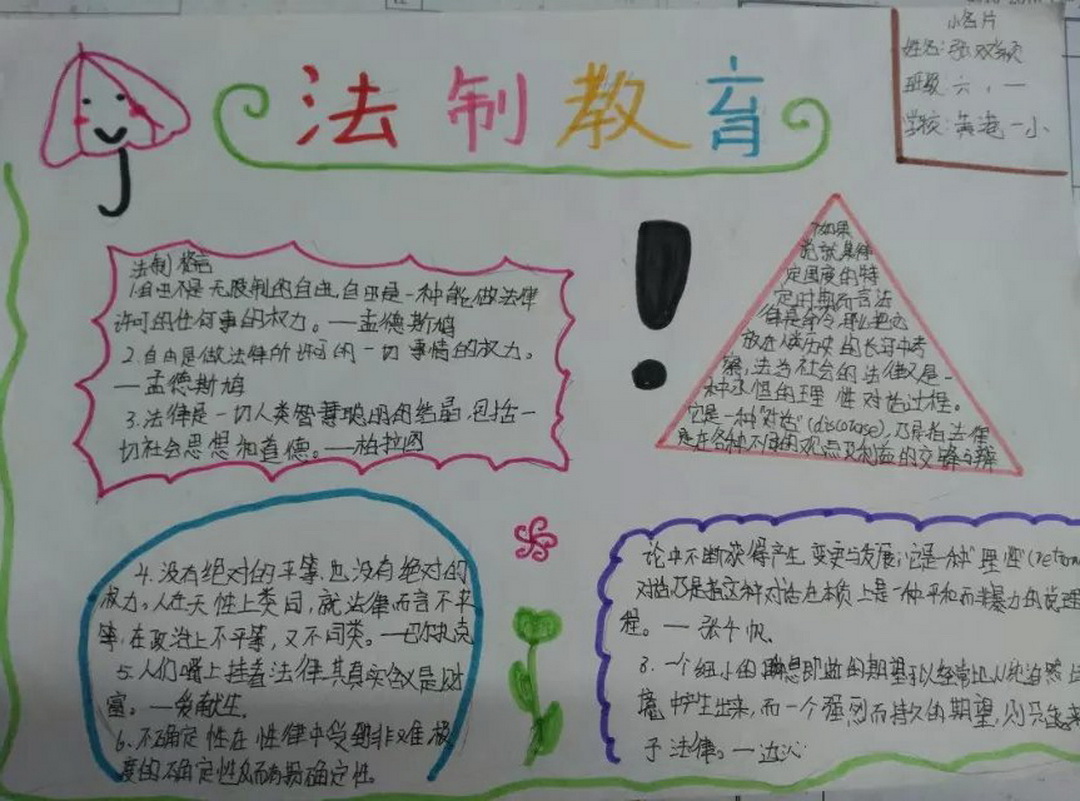 法制教育
小名片
姓名:张双颖
班级 六 . 一
学校: 黄港一小
法制格言
1.自由不是无限制的自由,自由是一种能做法律
许可的任何事的权力。—孟德斯鸠
2.自由是做法律所许可的一切事情的权力。
—孟德斯鸠
3.法律是一切人类智慧聪明的结晶,包括一
切社会思想和道德。—柏拉图
7如果
说就具体
定国度的特
定时期而言法
律是命令,那么把它
放在人类历史的长河中考
察,法为社会的法律又是一
种永恒的理性对话过程。
它是一种"对话"(discotose),乃是指法律
是在各种不同的观点及利益的交锋与辩
4.没有绝对的平等,也没有绝对的
权力。人在天性上类同,就法律而言不平
等,在政治上不平等,又不同类。—巴尔扎克
5.人们嘴上挂着法律,其真实含义是财
富。—爱献生.
6、不确定性在性律中受到非难,极
度的不确定性反而有易确定性。
论中不断获得产生,变更与发展;它是一种"理性"
对话,乃是指这种对话在本质上是一种平和而非暴力的说理
程。—张千帆.
8.一个细小的瞬息即逝的期望可以经常地从纯自然
境中产生出来,而一个强烈而持久的期望,则只能来
于法律。—边沁